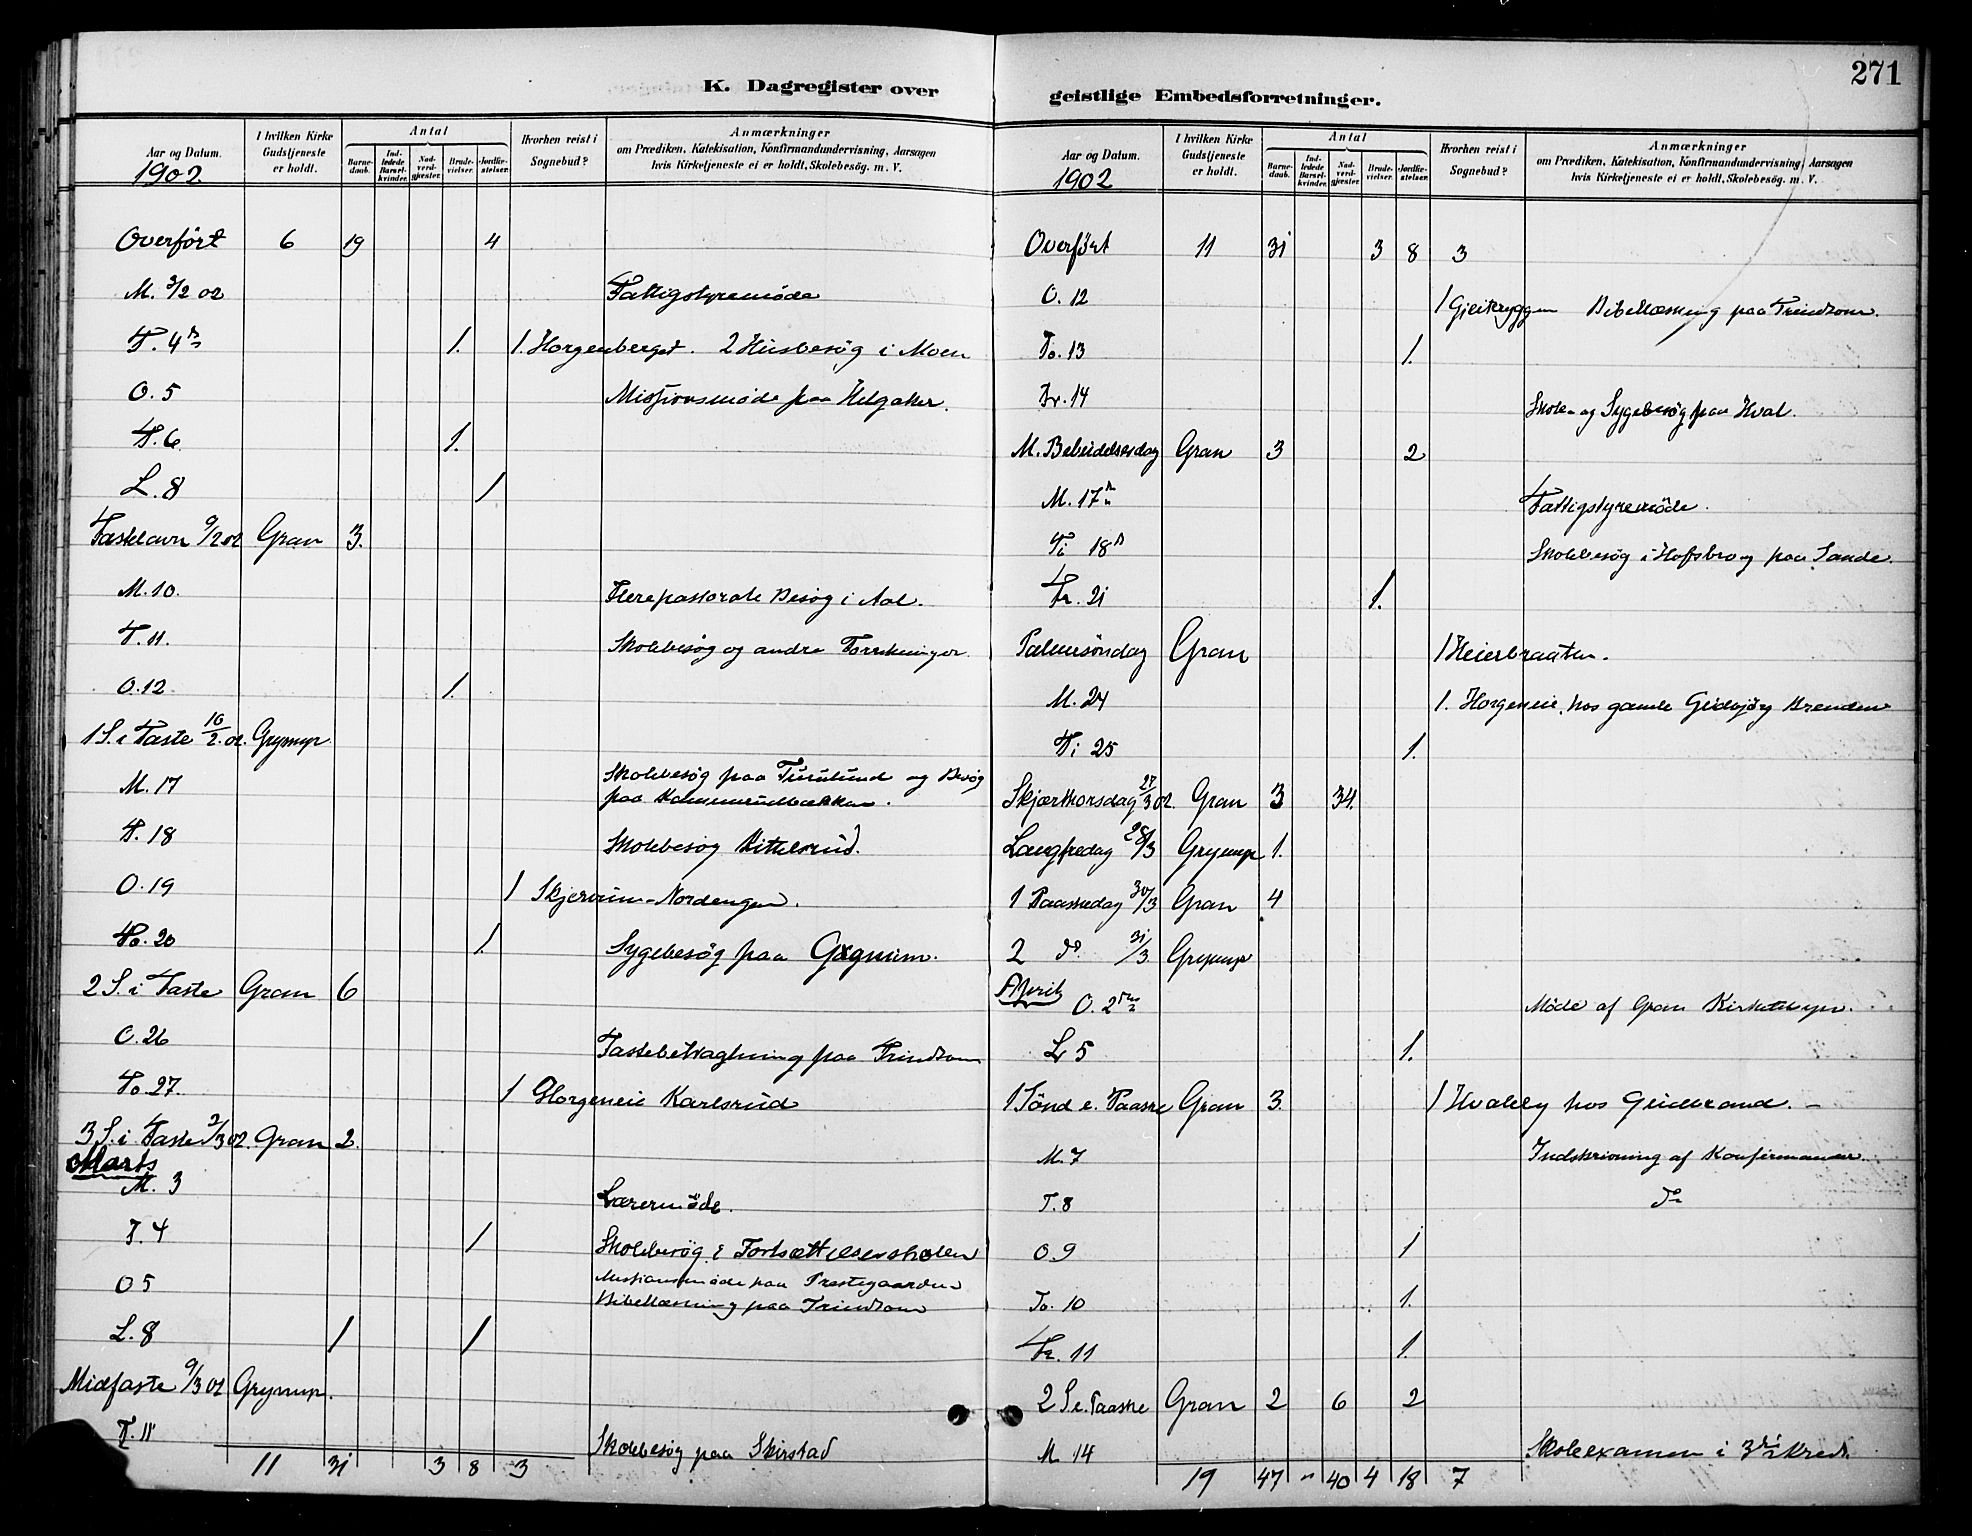 K. Dagregister over
Aar og Datum.
1902.
I hvilken Kirke Gudstjeneste er holdt.
Antal
Barne-daab.
Ind-ledede Barsel-kvinder.
Nad-verd-gjester.
Brude-vielser.
Jordfæ-stelser.
Hvorhen reist i Sognebud?
Anmærkninger
om Prædiken, Katekisation, Konfirmandundervisning, Aarsagen
hvis Kirketjeneste ei er holdt, Skolebesøg. m. V.
Overført 6 19 4
M. 3/2 02 Fattigstyremøde
T. 4de 1. 1. Horgenberget. 2 Husbesøg i Moen
O. 5 Missionsmøde paa Helgaker.
T. 6. 1.
L. 8 1
Fastelavn 9/2 02 Gran 3.
M. 10. Flere pastorale Besøg i Aal.
T. 11. Skolebesøg og andre Forretninger.
O. 12. 1.
1 S. i Faste 16/2.02. Grymyr.
M. 17 Skolebesøg paa Furulund og Besøg
paa
T. 18 Skolebesøg Kittelsrud.
O. 19 1 Skjervum-Nordengen.
To. 20 1. Sygebesøg paa Gagnum.
2 S. i Faste Gran 6
O. 26 Fastebetragtning paa Trindtom
To. 27. 1 Horgeneie Karlsrud
3 S. i Faste 2/3 02. Gran 2.
Marts
M. 3 Lærermøde.
T. 4 1 Skolebesøg i Fortsættelsesskolen
O 5 Missionsmøde paa Prestegaarden
Bibellæsning paa Trindtom
L. 8 1 1
Midfaste 9/3 02 Grymyr.
T. 11 Skolebesøg paa Skirstad
11 31 3 8 3
271
geistlige Embedsforretninger.
Aar og Datum.
1902
I hvilken Kirke Gudstjeneste er holdt.
Antal
Barne-daab.
Ind-ledede Barsel-kvinder.
Nad-verd-gjester.
Brude-vielser.
Jordfæ-stelser.
Hvorhen reist i Sognebud?
Anmærkninger
om Prædiken, Katekisation, Konfirmandundervisning, Aarsagen
hvis Kirketjeneste ei er holdt, Skolebesøg. m. V.
Overført 11 31 3 8 3
O. 12 1 Gjeitryggen Bibellæsning paa Trindtom.
To. 13 1.
Fr. 14 Skole- og Sygebesøg paa Hval.
M. Bebudelsesdag Gran 3 2
M. 17de Fattigstyremøde.
Ti 18de Skolebesøg i Hofsbro og paa Sande.
Fr. 21 1.
Palmesøndag Gran 1 Heierbraaten.
M. 24 1. Horgeneie, hos gamle Brenden
Ti 25 1.
Skjærthorsdag 27/3 02. Gran 3 34.
Langfredag 28/3 Grymyr 1.
1 Paaskedag 30/3 Gran 4
2 do 31/3 Grymyr
April
O. 2den Møde af Gran Kirketilsyn.
L 5 1.
1 Sønd e. Paaske Gran 3. 1 Hvaleby hos Gudbrand. –
M. 7 Indskrivning af Konfirmander.
T. 8 do
O 9 1
To. 10 1.
Fr. 11 1.
2 S e. Paaske Gran 2 6 2
M 14 Skoleexamen i 3die Kreds.
19 47 " 40 4 18 7